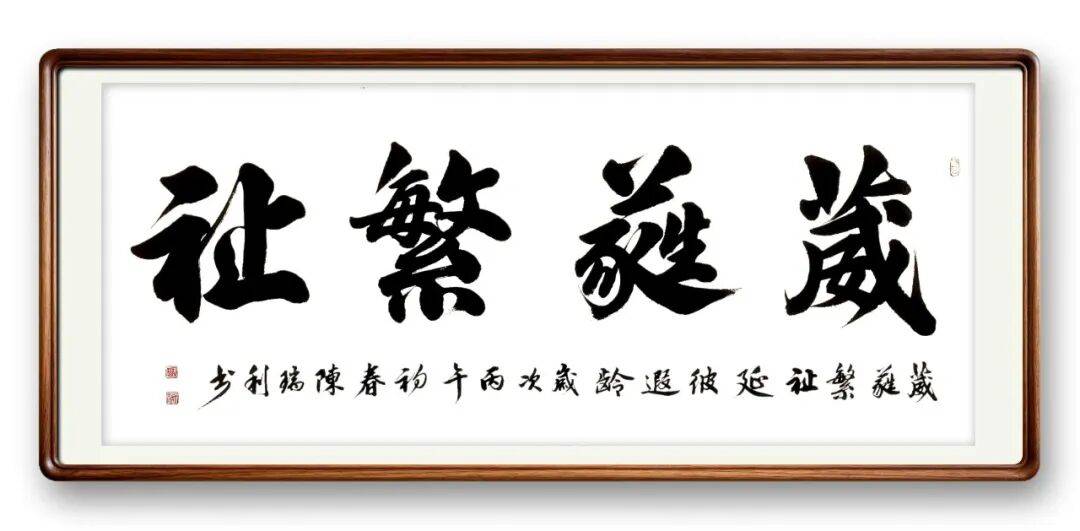 葳蕤繁祉
葳蕤繁祉延彼遐齡歲次丙午初春陳瑞利书